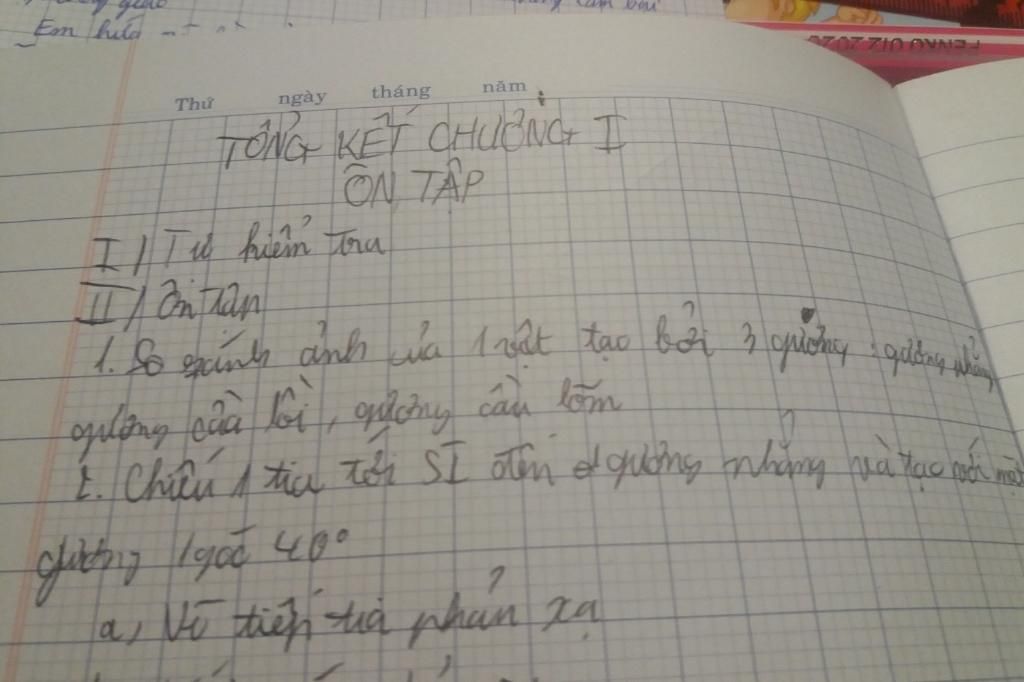 Em hiểu
FENKO QIZ 2020
Thứ ngày tháng năm
TỔNG KẾT CHƯƠNG I
ÔN TẬP
I / Tự kiểm tra
II / Ôn tập
1. So sánh ảnh của 1 vật tạo bởi 3 gương : gương phẳng
gương cầu lồi, gương cầu lõm
2. Chiếu 1 tia tới SI đến gương phẳng và tạo với mặt
gương 1 góc 40°
a, Vẽ tiếp tia phản xạ